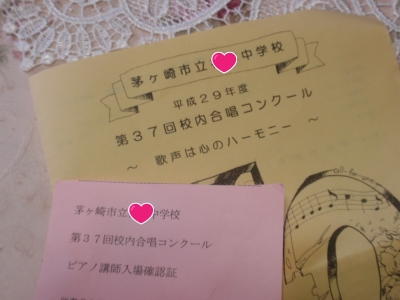 茅ヶ崎市立 中学校
平成29年度
第37回校内合唱コンクール
～ 歌声は心のハーモニー ～
茅ヶ崎市立 中学校
第37回校内合唱コンクール
ピアノ講師入場確認証